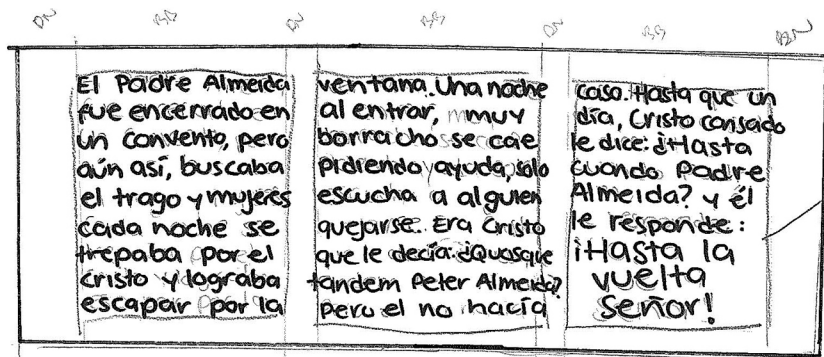 El Padre Almeida
fue encerrado en
un convento, pero
aún así, buscaba
el trago y mujeres
cada noche se
trepaba por el
cristo y lograba
escapar por la
ventana. Una noche
al entrar, muy
borracho se cae
pidiendo ayuda, solo
escucha a alguien
quejarse. Era Cristo
que le decía: ¿Quosque
tandem Peter Almeida?
pero el no hacía
caso. Hasta que un
día, Cristo cansado
le dice: ¿Hasta
cuando Padre
Almeida? y él
le responde:
¡Hasta la
vuelta
señor!